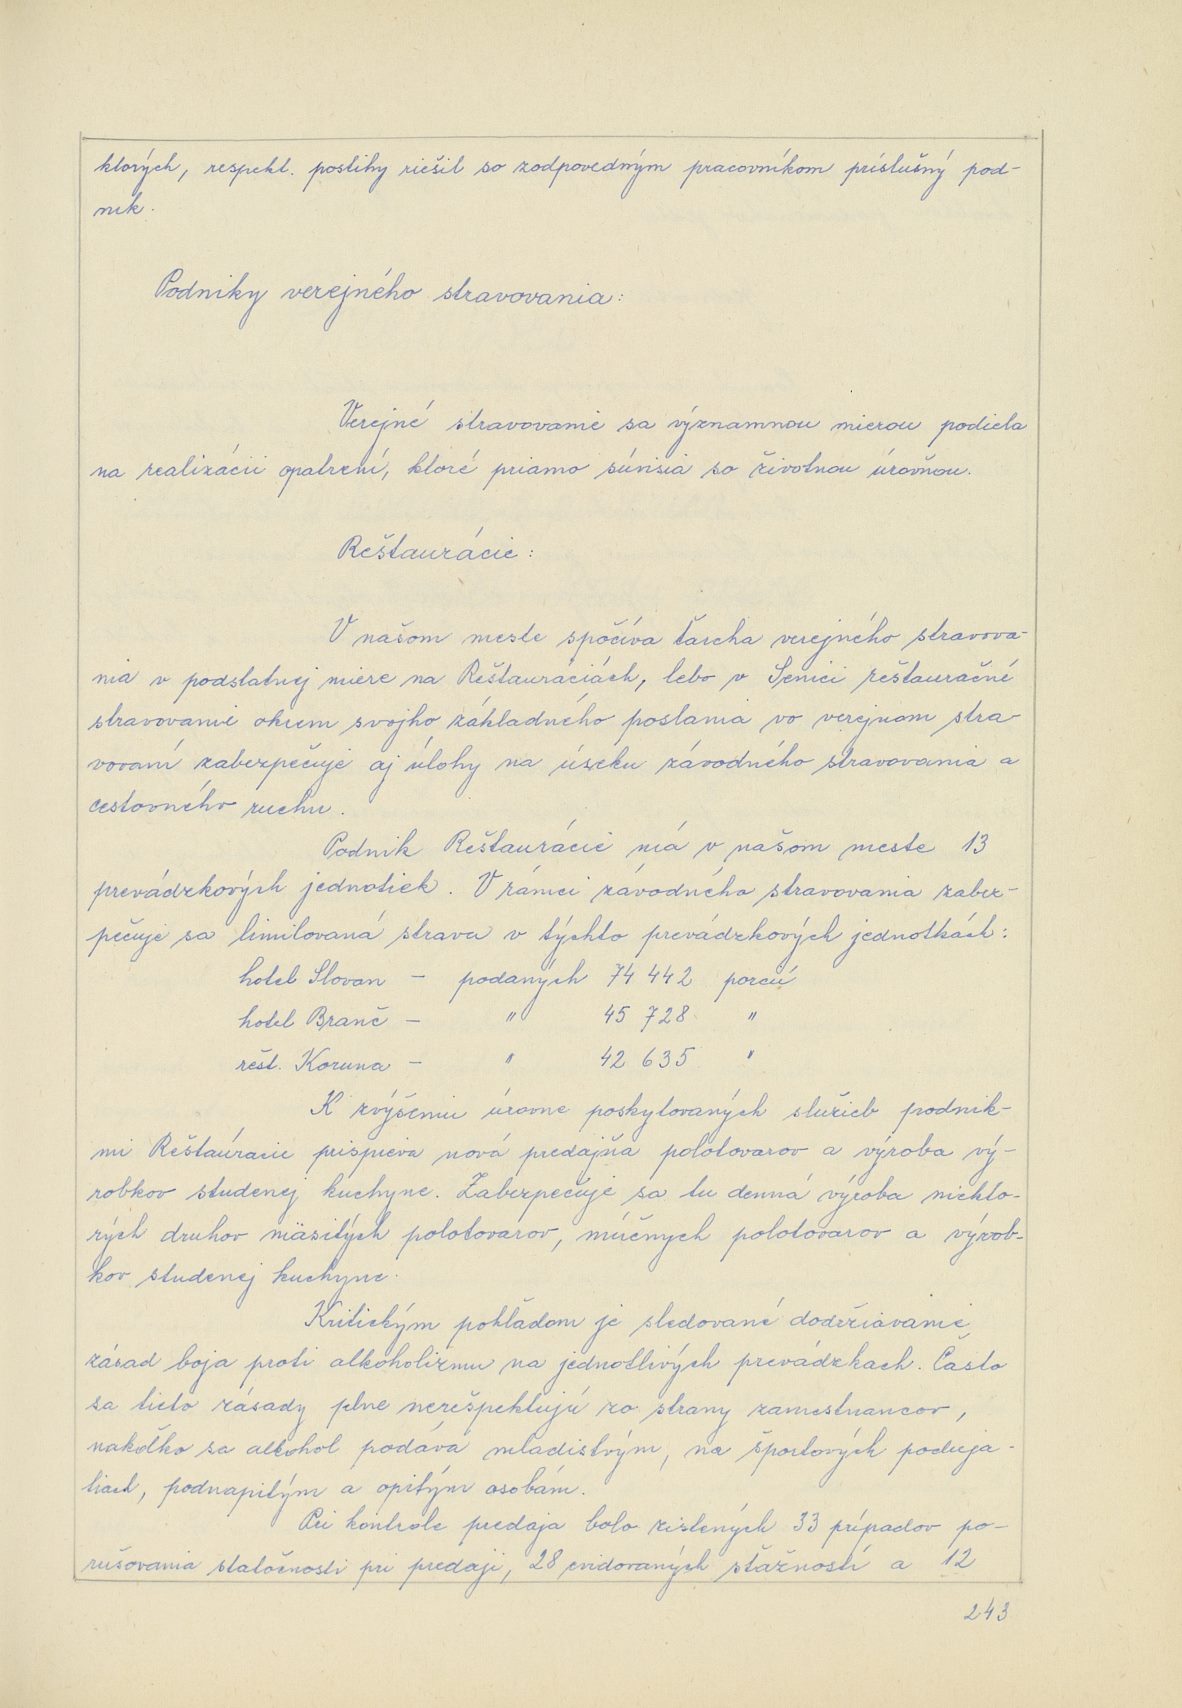 ktorých, respekt. postihy riešil so zodpovedným pracovníkom príslušný pod-
nik.
Podniky verejného stravovania:
Verejné stravovanie sa významnou mierou podiela
na realizácii opatrení, ktoré priamo súvisia so životnou úrovňou.
Reštaurácie:
V našom meste spočíva ťarcha verejného stravova-
nia v podstatnej miere na Reštauráciách, lebo v Senici reštauračné
stravovanie okrem svojho základného poslania vo verejnom stra-
vovaní zabezpečuje aj úlohy na úseku závodného stravovania a
cestovného ruchu.
Podnik Reštaurácie má v našom meste 13
prevádzkových jednotiek. V rámci závodného stravovania zabez-
pečuje sa limitovaná strava v týchto prevádzkových jednotkách:
hotel Slovan - podaných 74 442 porcií
hotel Branč - " 45 728 "
rešt. Koruna - " 42 635 "
K zvýšeniu úrovne poskytovaných služieb podnik-
mi Reštaurácie prispieva nová predajňa polotovarov a výroba vý-
robkov studenej kuchyne. Zabezpečuje sa tu denná výroba niekto-
rých druhov mäsitých polotovarov, múčnych polotovarov a výrob-
kov studenej kuchyne.
Kritickým pohľadom je sledované dodržiavanie
zásad boja proti alkoholizmu na jednotlivých prevádzkach. Často
sa tieto zásady plne nerešpektujú zo strany zamestnancov,
nakoľko sa alkohol podáva mladistvým, na športových poduja-
tiach, podnapitým a opitým osobám.
Pri kontrole predaja bolo zistených 33 prípadov po-
rušovania statočnosti pri predaji, 28 evidovaných sťažností a 12
243